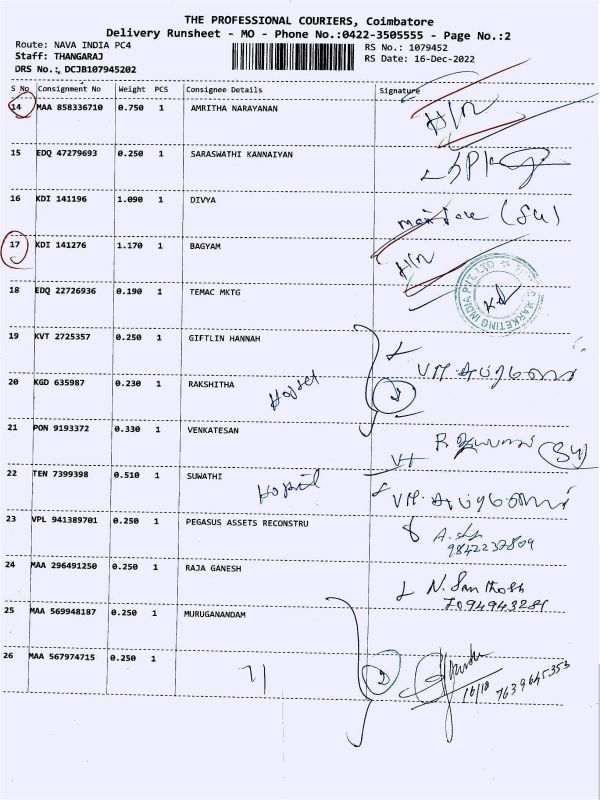 THE PROFESSIONAL COURIERS, Coimbatore
Delivery Runsheet - MO - Phone No.:0422-3505555 - Page No.:2
Route: NAVA INDIA PC4 RS No.: 1079452
Staff: THANGARAJ RS Date: 16-Dec-2022
DRS No.: DCJB107945202
S No Consignment No Weight PCS Consignee Details Signature
14 MAA 858336710 0.750 1 AMRITHA NARAYANAN H/N
15 EDQ 47279693 0.250 1 SARASWATHI KANNAIYAN
16 KDI 141196 1.090 1 DIVYA
17 KDI 141276 1.170 1 BAGYAM H/N
18 EDQ 22726936 0.190 1 TEMAC MKTG
MARKETING INDIA PVT LTD
19 KVT 2725357 0.250 1 GIFTLIN HANNAH
20 KGD 635987 0.230 1 RAKSHITHA Hostel
21 PON 9193372 0.330 1 VENKATESAN
22 TEN 7399398 0.510 1 SUWATHI
23 VPL 941389701 0.250 1 PEGASUS ASSETS RECONSTRU
9842237809
24 MAA 296491250 0.250 1 RAJA GANESH N. Santhosh
7094943281
25 MAA 569948187 0.250 1 MURUGANANDAM
26 MAA 567974715 0.250 1 2
7639645353